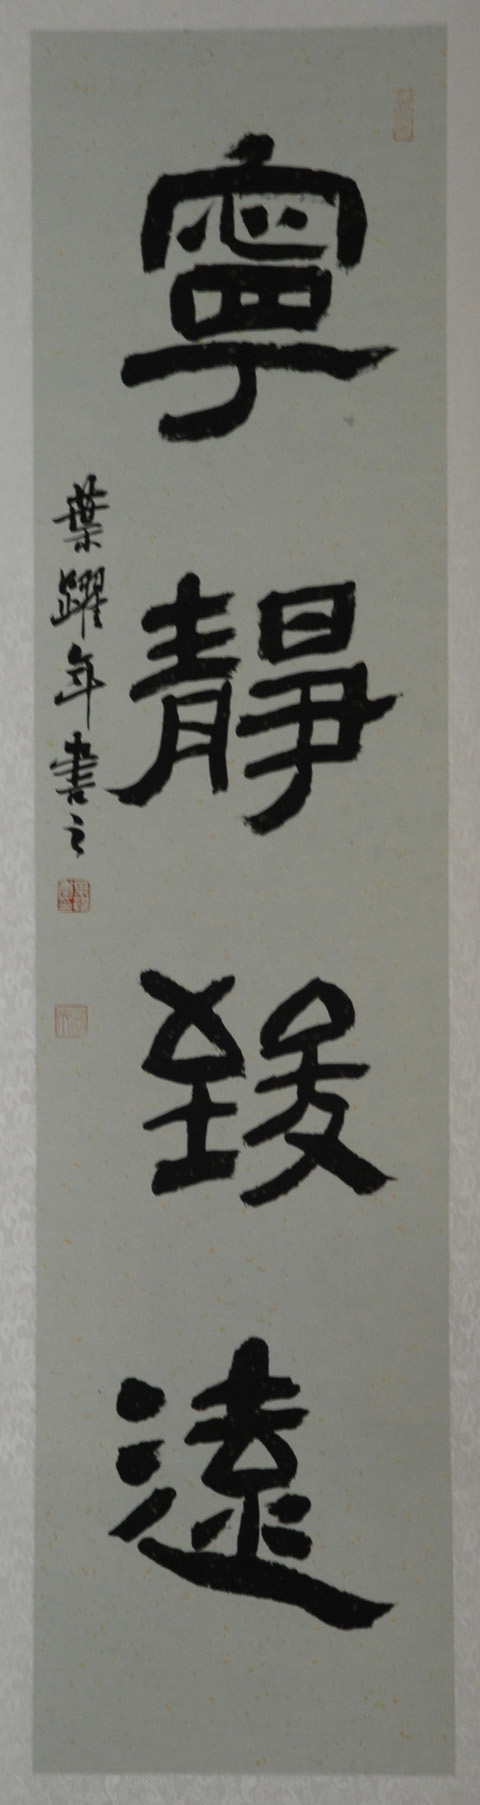 寧靜致遠
葉躍年書之